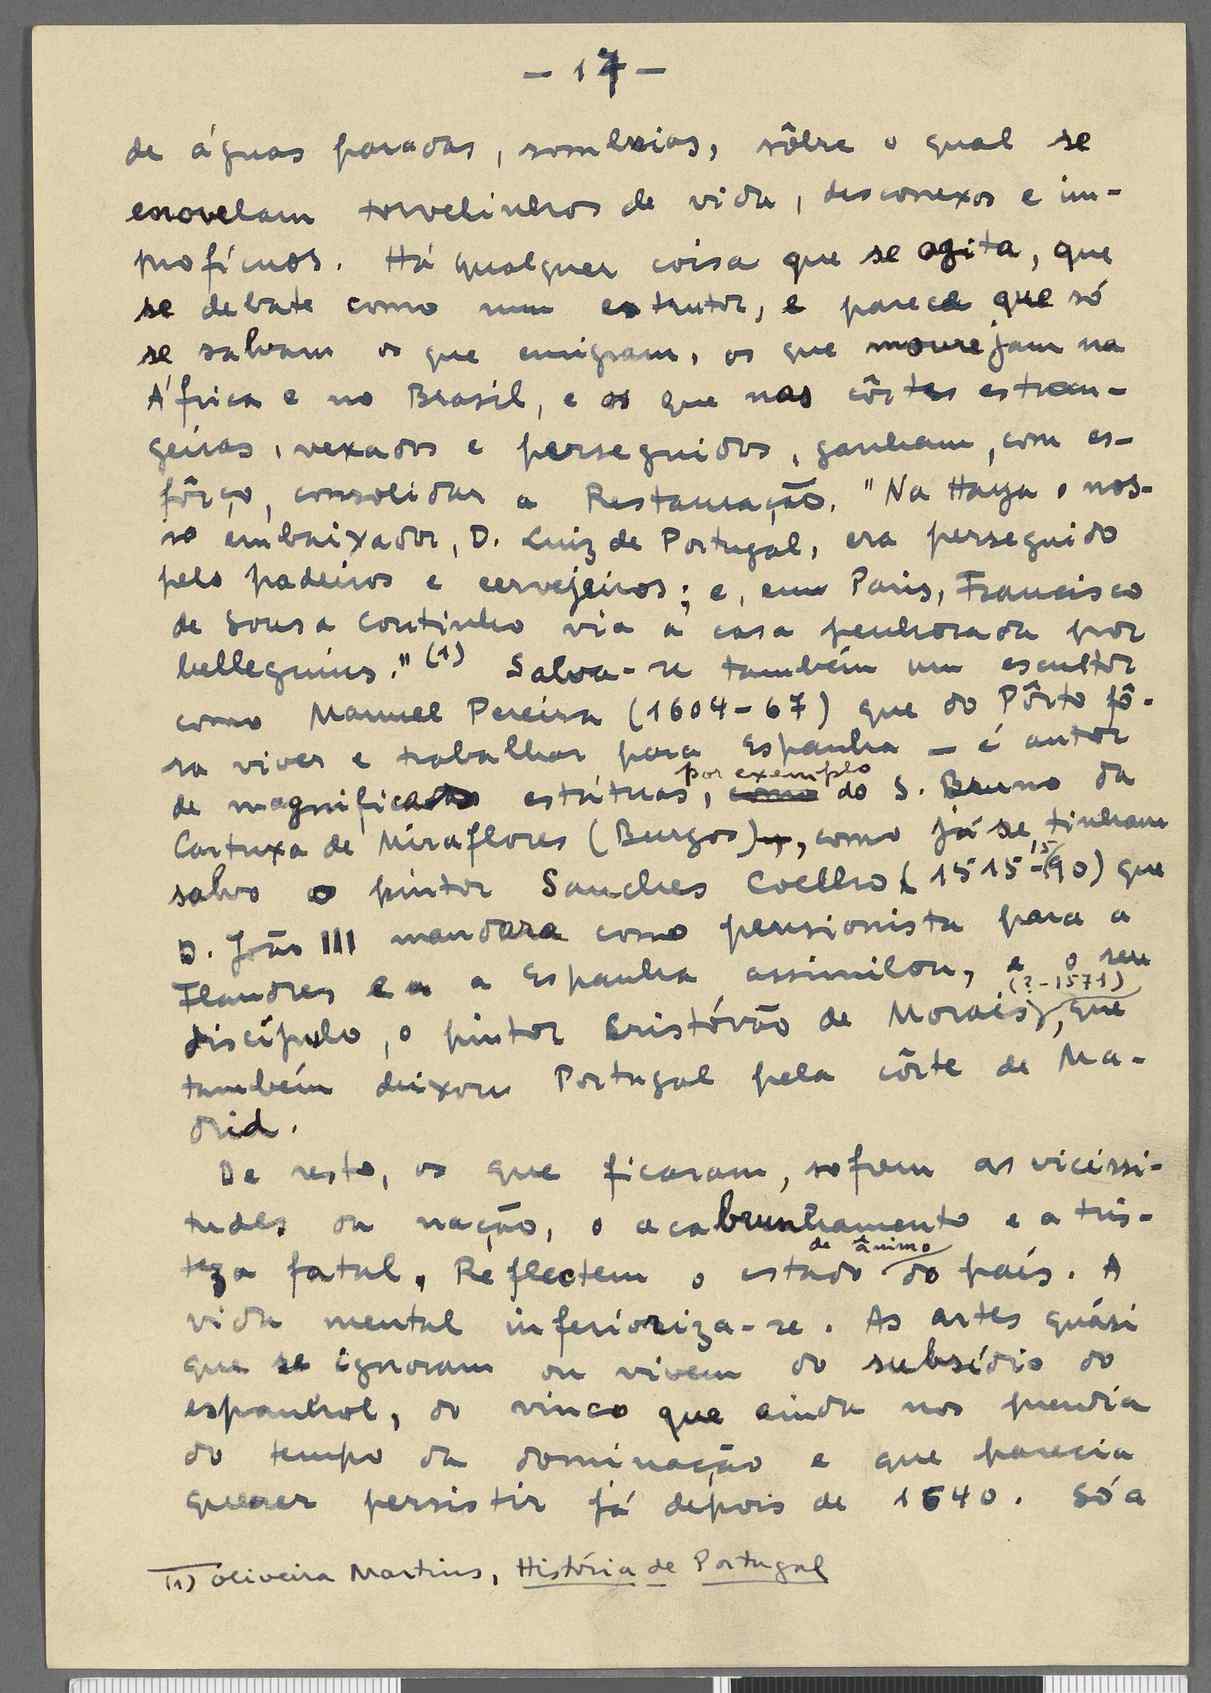 — 17 —
de águas paradas, sombrias, sôbre o qual se
enovelam torvelinhos de vida, desconexos e im-
profícuos. Há qualquer coisa que se agita, que
se debate como num estertor, e parece que só
se salvam os que emigram, os que mourejam na
África e no Brasil, e os que nas côrtes estran-
geiras, vexados e perseguidos, ganham, com es-
fôrço, consolidar a Restauração. "Na Haya o nos-
so embaixador, D. Luiz de Portugal, era perseguido
pelo padeiros e cervejeiros; e, em Paris, Francisco
de Sousa Coutinho via a casa penhorada por
belleguins." (1) Salva-se também um escultor
como Manuel Pereira (1604-67) que do Pôrto fô-
ra viver e trabalhar para Espanha — é autor
por exemplo
de magnificas estátuas, como do S. Bruno da
Cartuxa de Miraflores (Burgos), como já se tinham
salvo o pintor Sanches Coelho (1515-1590) que
D. João III mandara como pensionista para a
Flandres e a Espanha assimilou, e o seu
(?-1571)
discípulo, o pintor Cristóvão de Morais, que
também deixou Portugal pela côrte de Ma-
drid.
De resto, os que ficaram, sofrem as vicissi-
tudes da nação, o acabrunhamento e a tris-
de ânimo
teza fatal, Reflectem o estado do país. A
vida mental inferioriza-se. As artes quási
que se ignoram ou vivem do subsídio do
espanhol, do vinco que ainda nos prendia
do tempo da dominação e que parecia
querer persistir já depois de 1640. Só a
(1) Oliveira Martins, História de Portugal